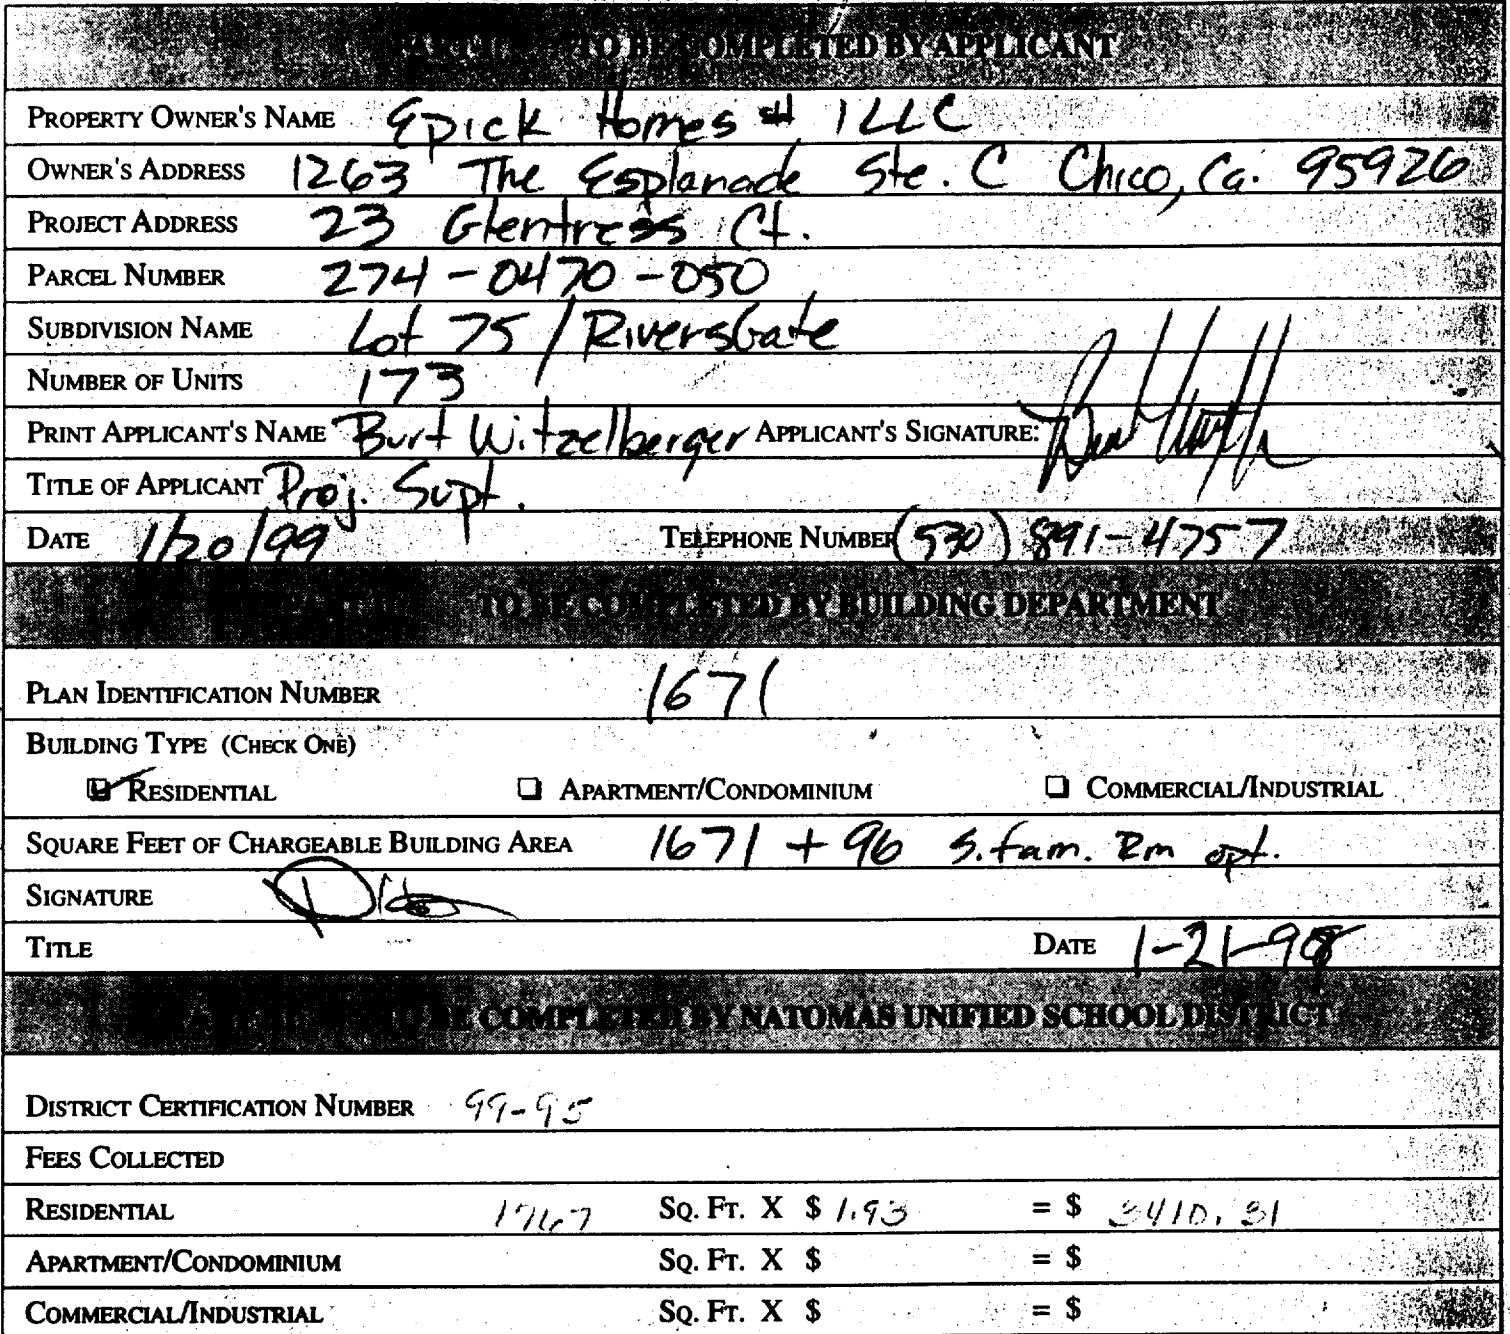 PART I TO BE COMPLETED BY APPLICANT
PROPERTY OWNER'S NAME Epick Homes # 1 LLC
OWNER'S ADDRESS 1263 The Esplanade Ste. C Chico, Ca. 95926
PROJECT ADDRESS 23 Glentress Ct.
PARCEL NUMBER 274-0470-050
SUBDIVISION NAME Lot 75 / RiversGate
NUMBER OF UNITS 173
PRINT APPLICANT'S NAME Burt Witzelberger APPLICANT'S SIGNATURE:
TITLE OF APPLICANT Proj. Supt.
DATE 1/20/99 TELEPHONE NUMBER (530) 891-4757
PART TO BE COMPLETED BY BUILDING DEPARTMENT
PLAN IDENTIFICATION NUMBER 1671
BUILDING TYPE (CHECK ONE)
RESIDENTIAL APARTMENT/CONDOMINIUM COMMERCIAL/INDUSTRIAL
SQUARE FEET OF CHARGEABLE BUILDING AREA 1671 + 96 s.fam. Rm opt.
SIGNATURE
TITLE DATE 1-21-98
TO BE COMPLETED BY NATOMAS UNIFIED SCHOOL DISTRICT
DISTRICT CERTIFICATION NUMBER 99-95
FEES COLLECTED
RESIDENTIAL 1767 SQ. FT. X $ 1.93 = $ 3410.31
APARTMENT/CONDOMINIUM SQ. FT. X $ = $
COMMERCIAL/INDUSTRIAL SQ. FT. X $ = $